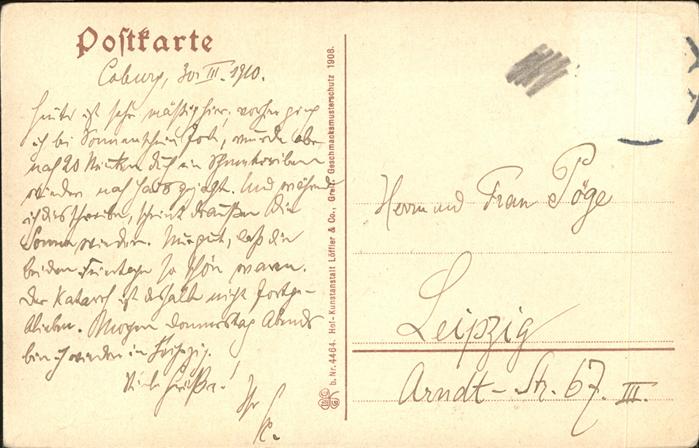 Postkarte
Coburg, 30. III. 1910.
Heute ist sehr mäßig hier. vorher ging
ich bei Sonnenschein fort, wurde aber
nach 20 Minuten durch ein Schneetreiben
wieder nach Haus gejagt. Und während
ich dies schreibe, scheint draußen die
Sonne wieder. Nur gut, daß die
beiden Feiertage so schön waren.
Der Katarrh ist deshalb nicht fortge-
blieben. Morgen Donnerstag Abend
bin ich wieder in Leipzig.
Viele Grüße!
Ihr
b. Nr. 4464. Hof-Kunstanstalt Löffler & Co., Greiz. Geschmacksmusterschutz 1908.
Herrn und Frau Pöge
Leipzig
Arndt-Str. 67. III.